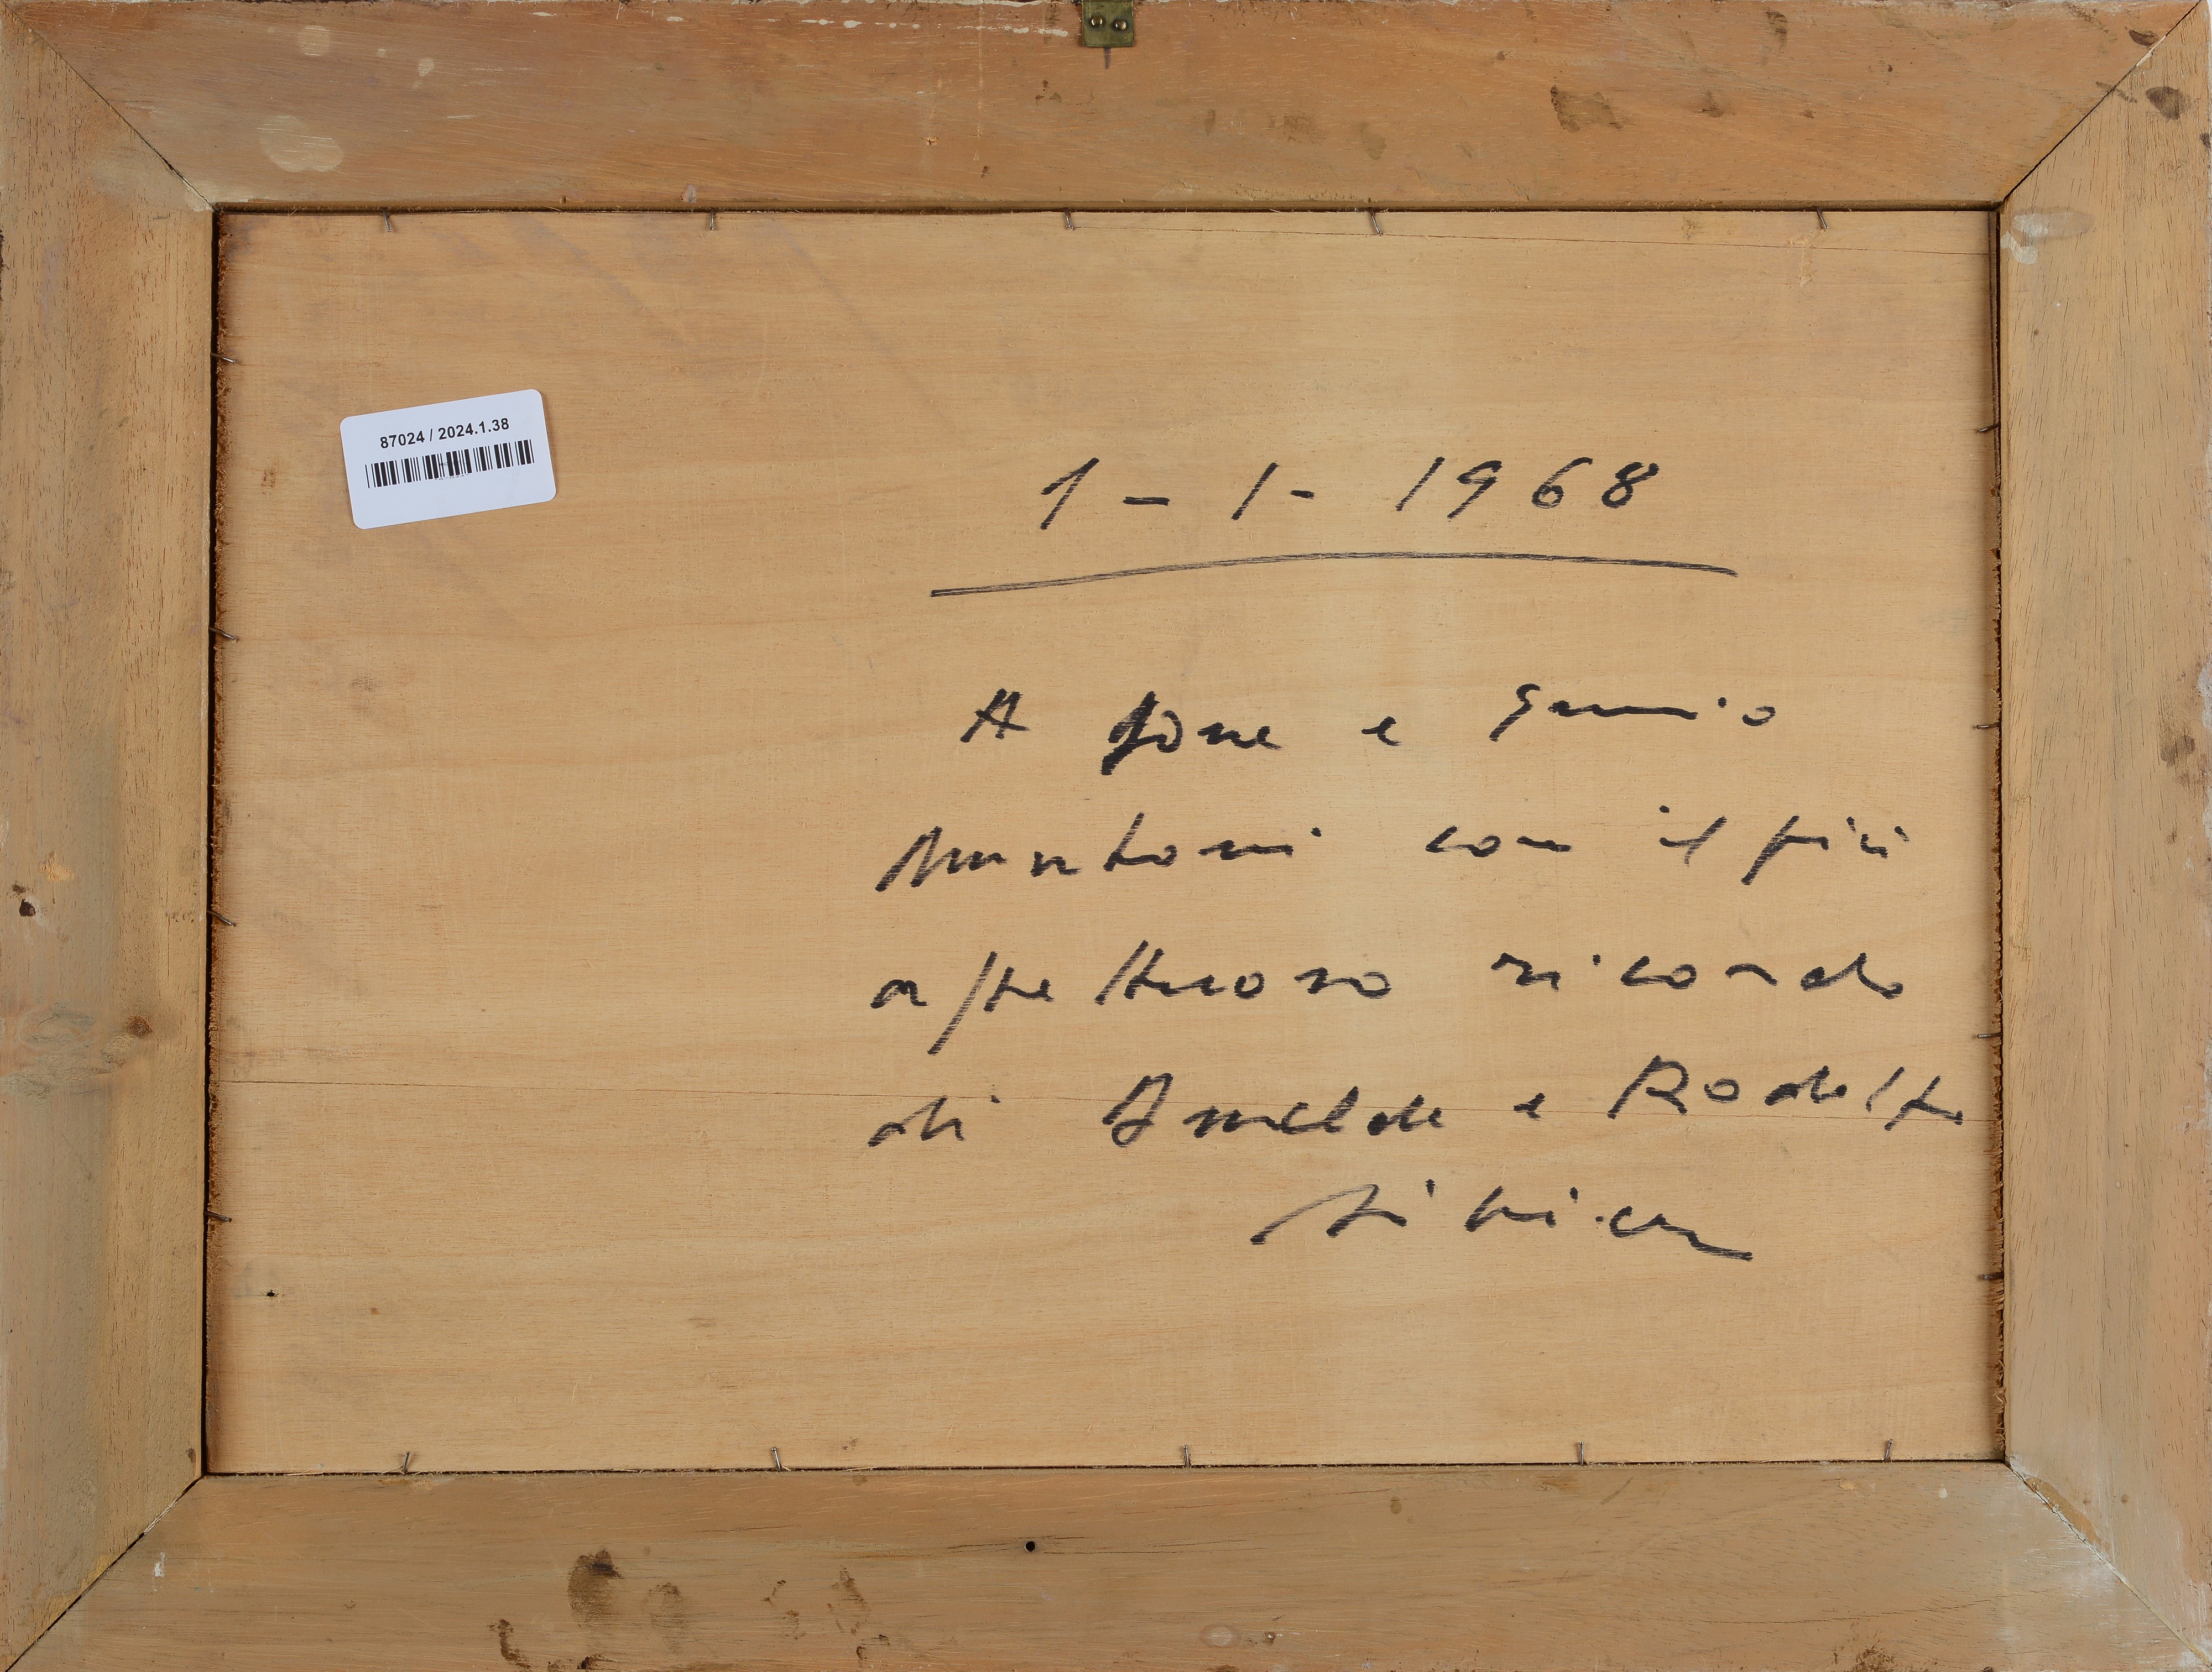 87024 / 2024.1.38
1 - 1 - 1968
A Jone e
Muntoni con il più
affettuoso ricordo
di Imelde e Rodolfo